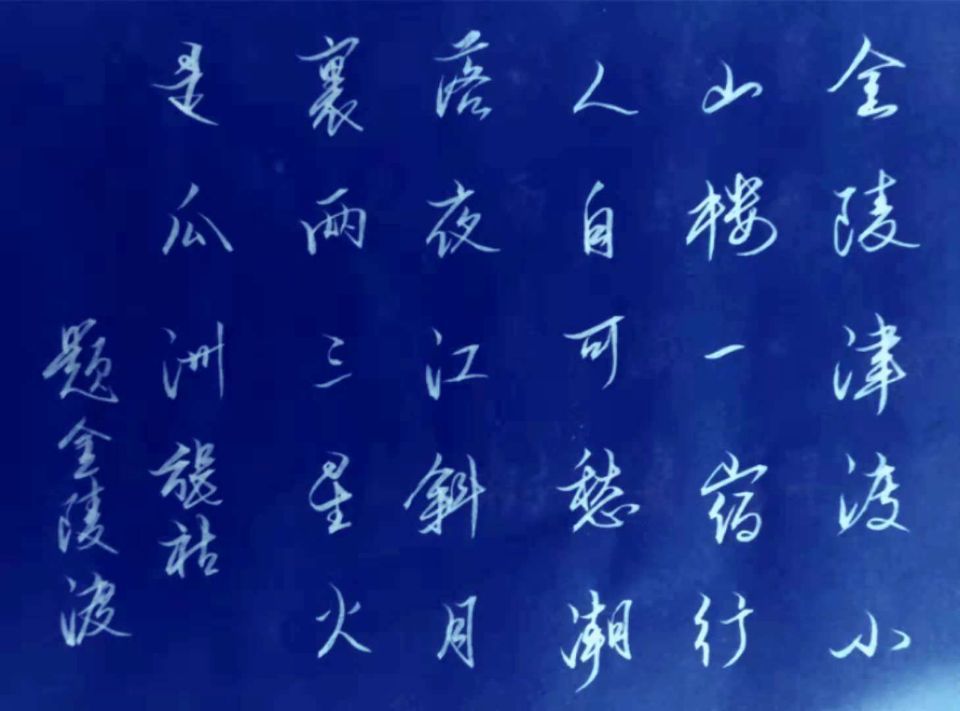 金陵津渡小
山楼一宿行
人自可愁潮
落夜江斜月
裏两三星火
是瓜洲 張祜
题金陵渡